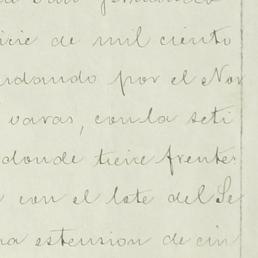 de San Fernando
icie de mil ciento
ndando por el Nor
varas, con la seti
donde tiene frente
con el lote del Se
na estension de cin